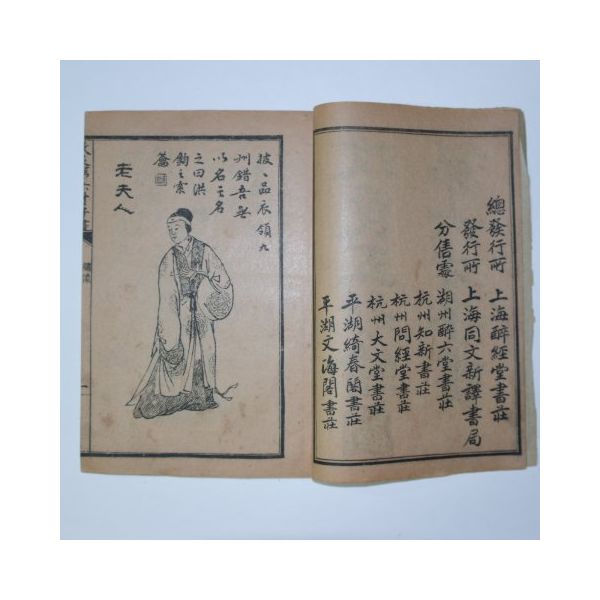 總發行所 上海醉經堂書莊
發行所 上海同文新譯書局
分售處 湖州醉六堂書莊
杭州知新書莊
杭州問經堂書莊
杭州大文堂書莊
平湖綺春閣書莊
平湖文海閣書莊
披、品衣領九
州錯吾無
以名之名
之曰洪
鈞之索
籥
老夫人